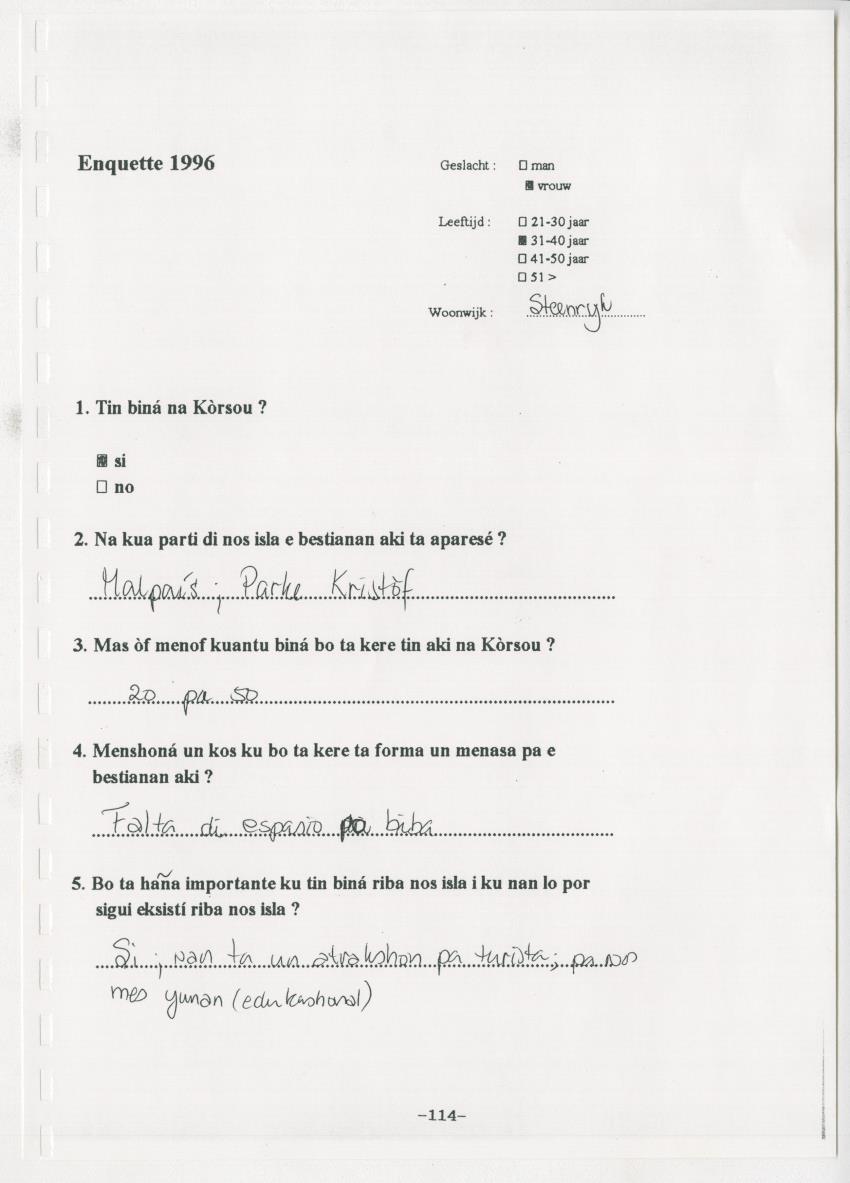 Enquette 1996
Geslacht : □ man
▣ vrouw
Leeftijd : □ 21-30 jaar
■ 31-40 jaar
□ 41-50 jaar
□ 51 >
Woonwijk : Steenryk
1. Tin biná na Kòrsou ?
▣ si
□ no
2. Na kua parti di nos isla e bestianan aki ta aparesé ?
Malpaís ; Parke Kristòf
3. Mas òf menof kuantu biná bo ta kere tin aki na Kòrsou ?
20 pa 50
4. Menshoná un kos ku bo ta kere ta forma un menasa pa e
bestianan aki ?
Falta di espasio pa biba
5. Bo ta haña importante ku tin biná riba nos isla i ku nan lo por
sigui eksistí riba nos isla ?
Si ; nan ta un atrakshon pa turista; pa nos
mes yunan (edukashonal)
-114-